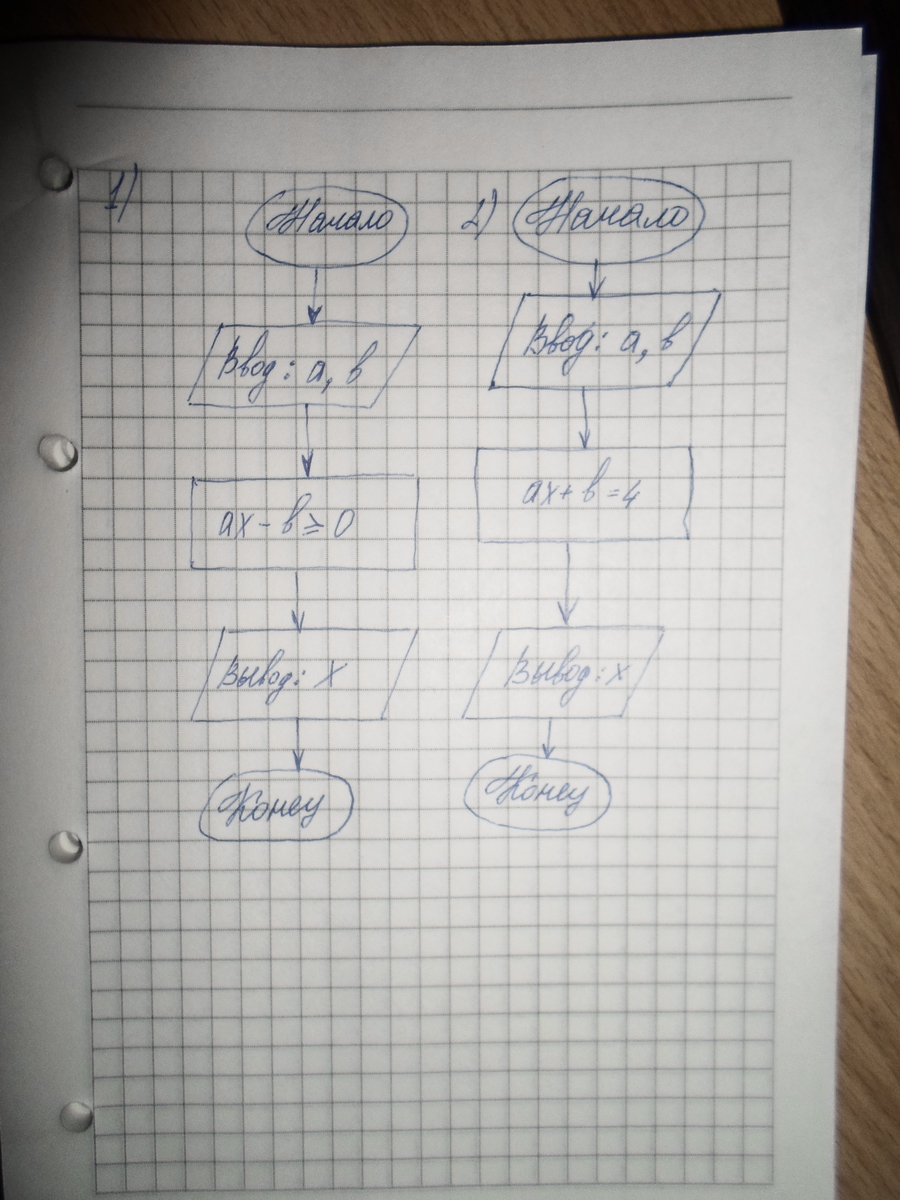 1)
Начало
Ввод: а, в
ax - в ≥ 0
Вывод: x
Конец
2)
Начало
Ввод: а, в
ax + в = 4
Вывод: x
Конец